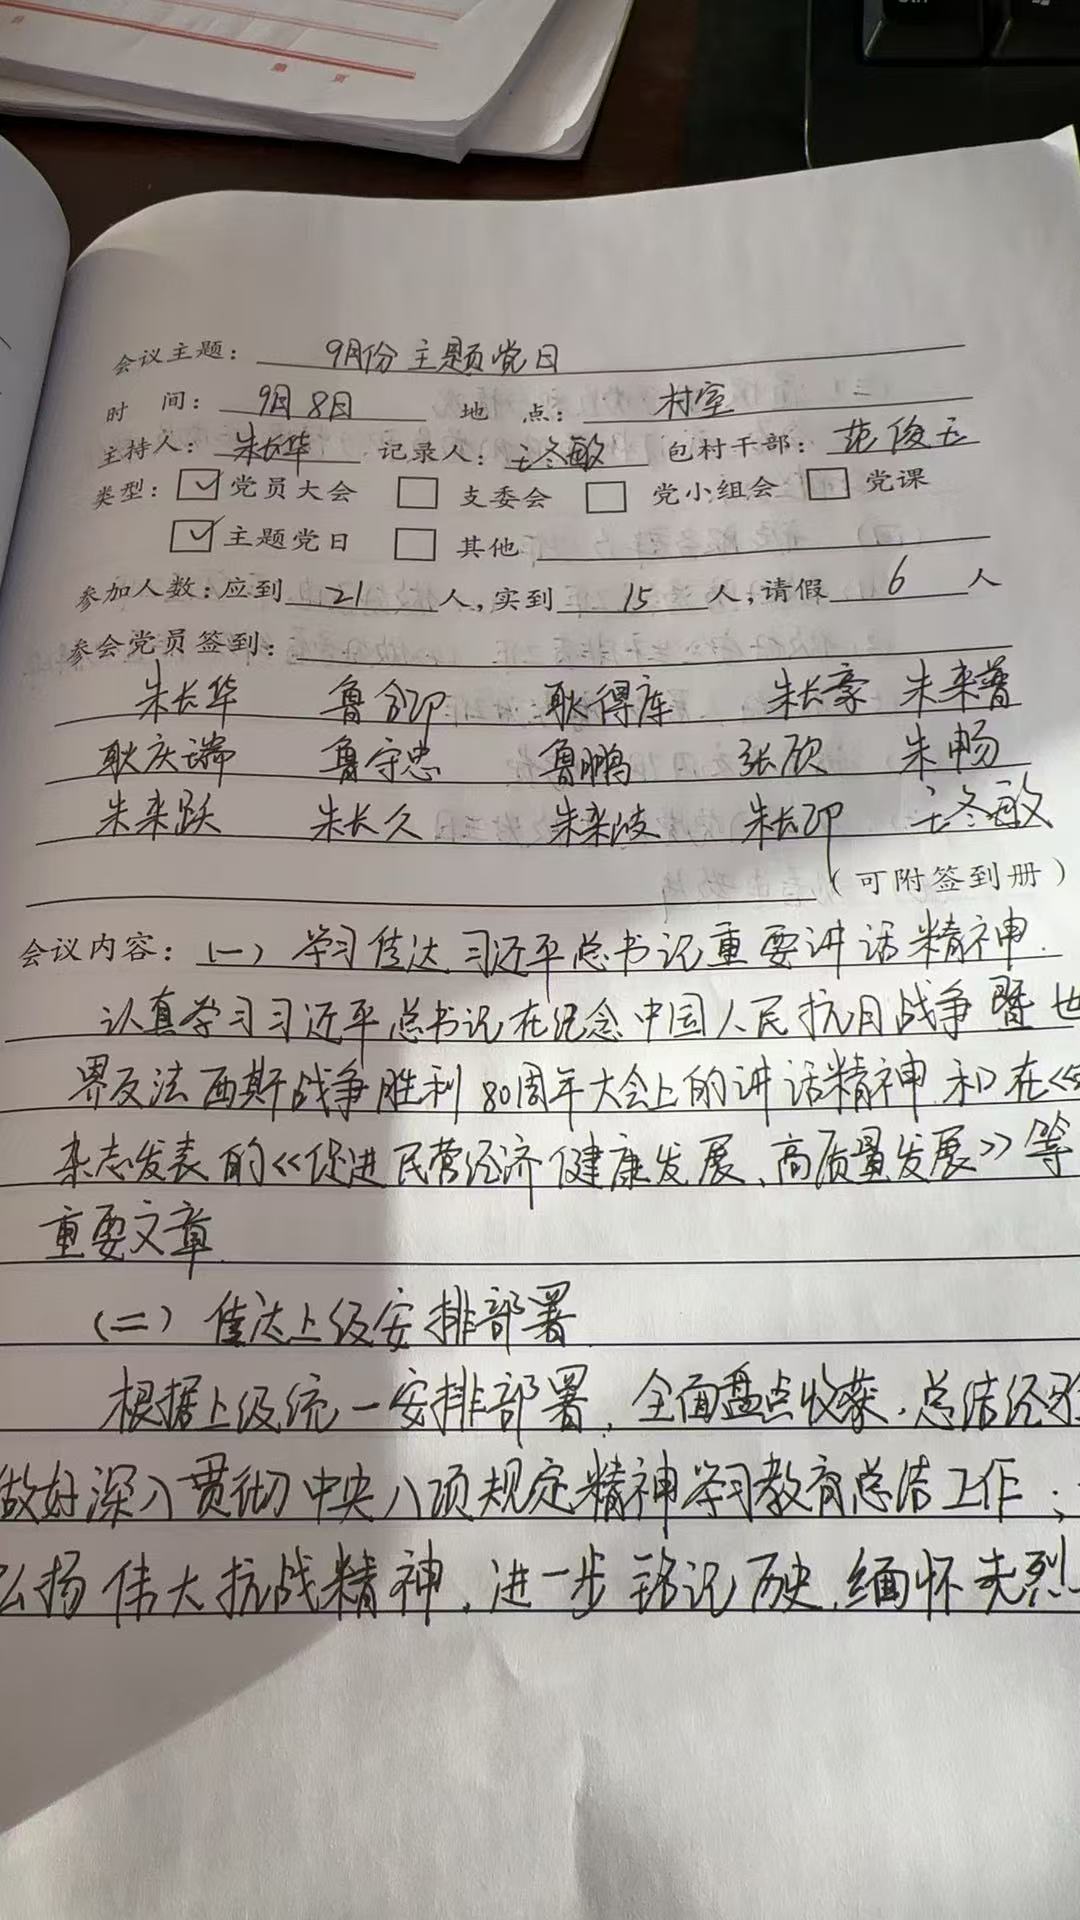 第 页
会议主题：9月份主题党日
时 间：9月8日 地 点：村室
主持人：朱长华 记录人：王冬敏 包村干部：范俊玉
类型：☑党员大会 □支委会 □党小组会 □党课
☑主题党日 □其他
参加人数：应到 21 人，实到 15 人，请假 6 人
参会党员签到：
朱长华 鲁合印 耿得库 朱长豪 朱来普
耿庆瑞 鲁守忠 鲁鹏 张欣 朱畅
朱来跃 朱长久 朱来波 朱长印 王冬敏
（可附签到册）
会议内容：（一）学习传达习近平总书记重要讲话精神.
认真学习习近平总书记在纪念中国人民抗日战争暨世
界反法西斯战争胜利80周年大会上的讲话精神和在《
杂志发表的《促进民营经济健康发展、高质量发展》等
重要文章.
（二）传达上级安排部署
根据上级统一安排部署，全面盘点收获，总结经验
做好深入贯彻中央八项规定精神学习教育总结工作；
弘扬伟大抗战精神，进一步铭记历史，缅怀先烈